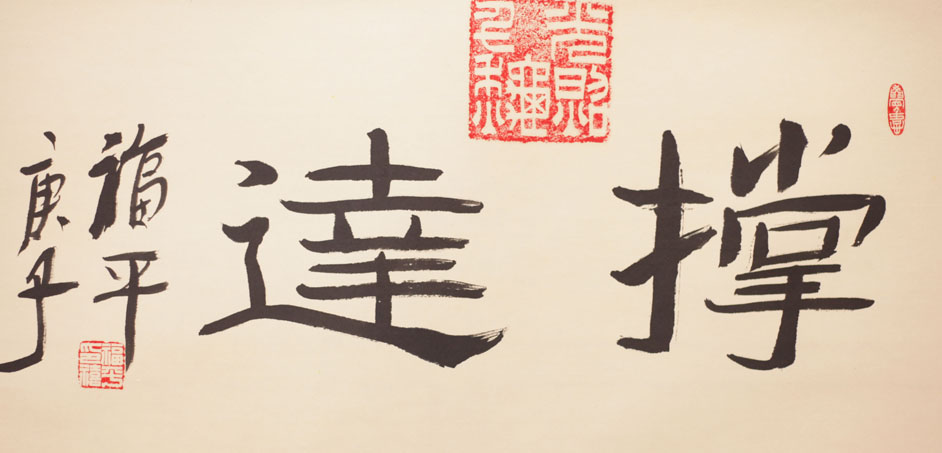 撑達
福平
庚子